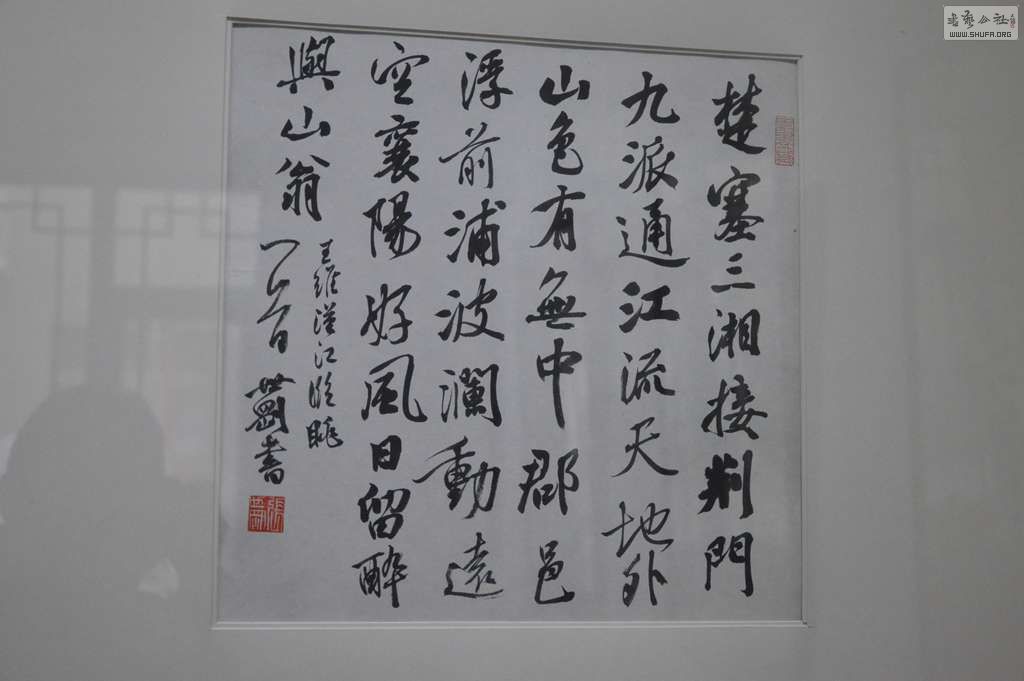 楚塞三湘接荆門
九派通江流天地外
山色有無中郡邑
浮前浦波瀾動遠
空襄陽好風日留醉
與山翁
王維漢江臨眺
書
書藝公社
WWW.SHUFA.ORG